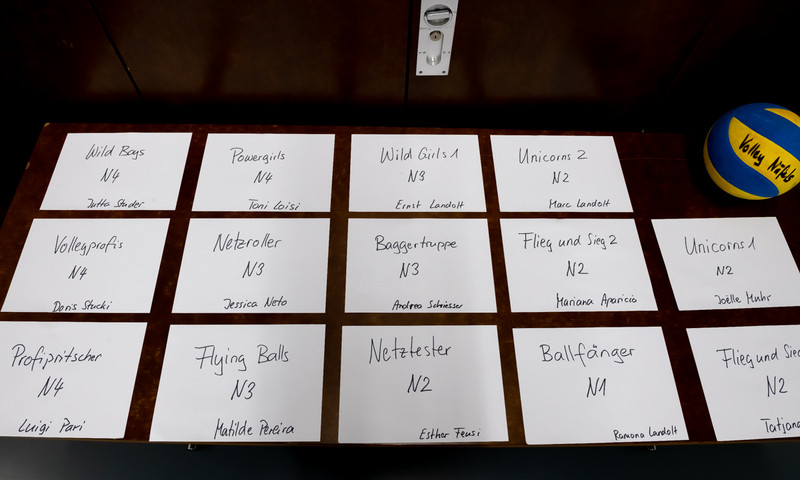 Wild Boys
N4
Jutta Studer
Powergirls
N4
Toni Loisi
Wild Girls 1
N3
Ernst Landolt
Unicorns 2
N2
Marc Landolt
Volley Näfels
Volleyprofis
N4
Doris Stucki
Netzroller
N3
Jessica Neto
Baggertruppe
N3
Andrea Schiesser
Flieg und Sieg 2
N2
Mariana Aparicio
Unicorns 1
N2
Joëlle Muhr
Profipritscher
N4
Luigi Pari
Flying Balls
N3
Matilde Pereira
Netztester
N2
Esther Feusi
Ballfänger
N1
Ramona Landolt
Flieg und Sieg
N2
Tatjana